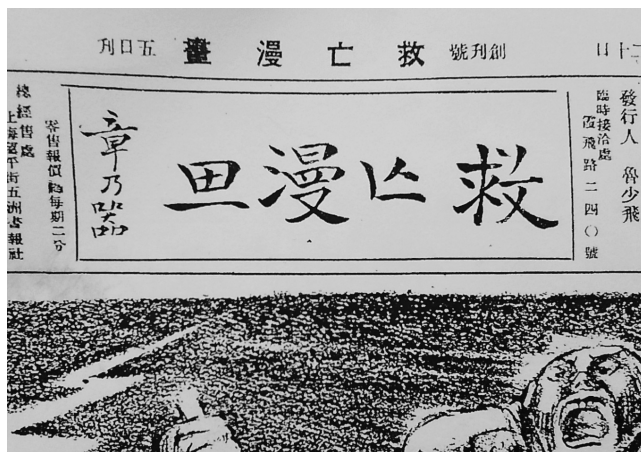 二十日
創刊號
救亡漫畫
五日刊
發行人 魯少飛
臨時接洽處
霞飛路二四〇號
救亾漫画
章乃器
零售報價 每期二分
總經售處
上海望平街五洲書報社